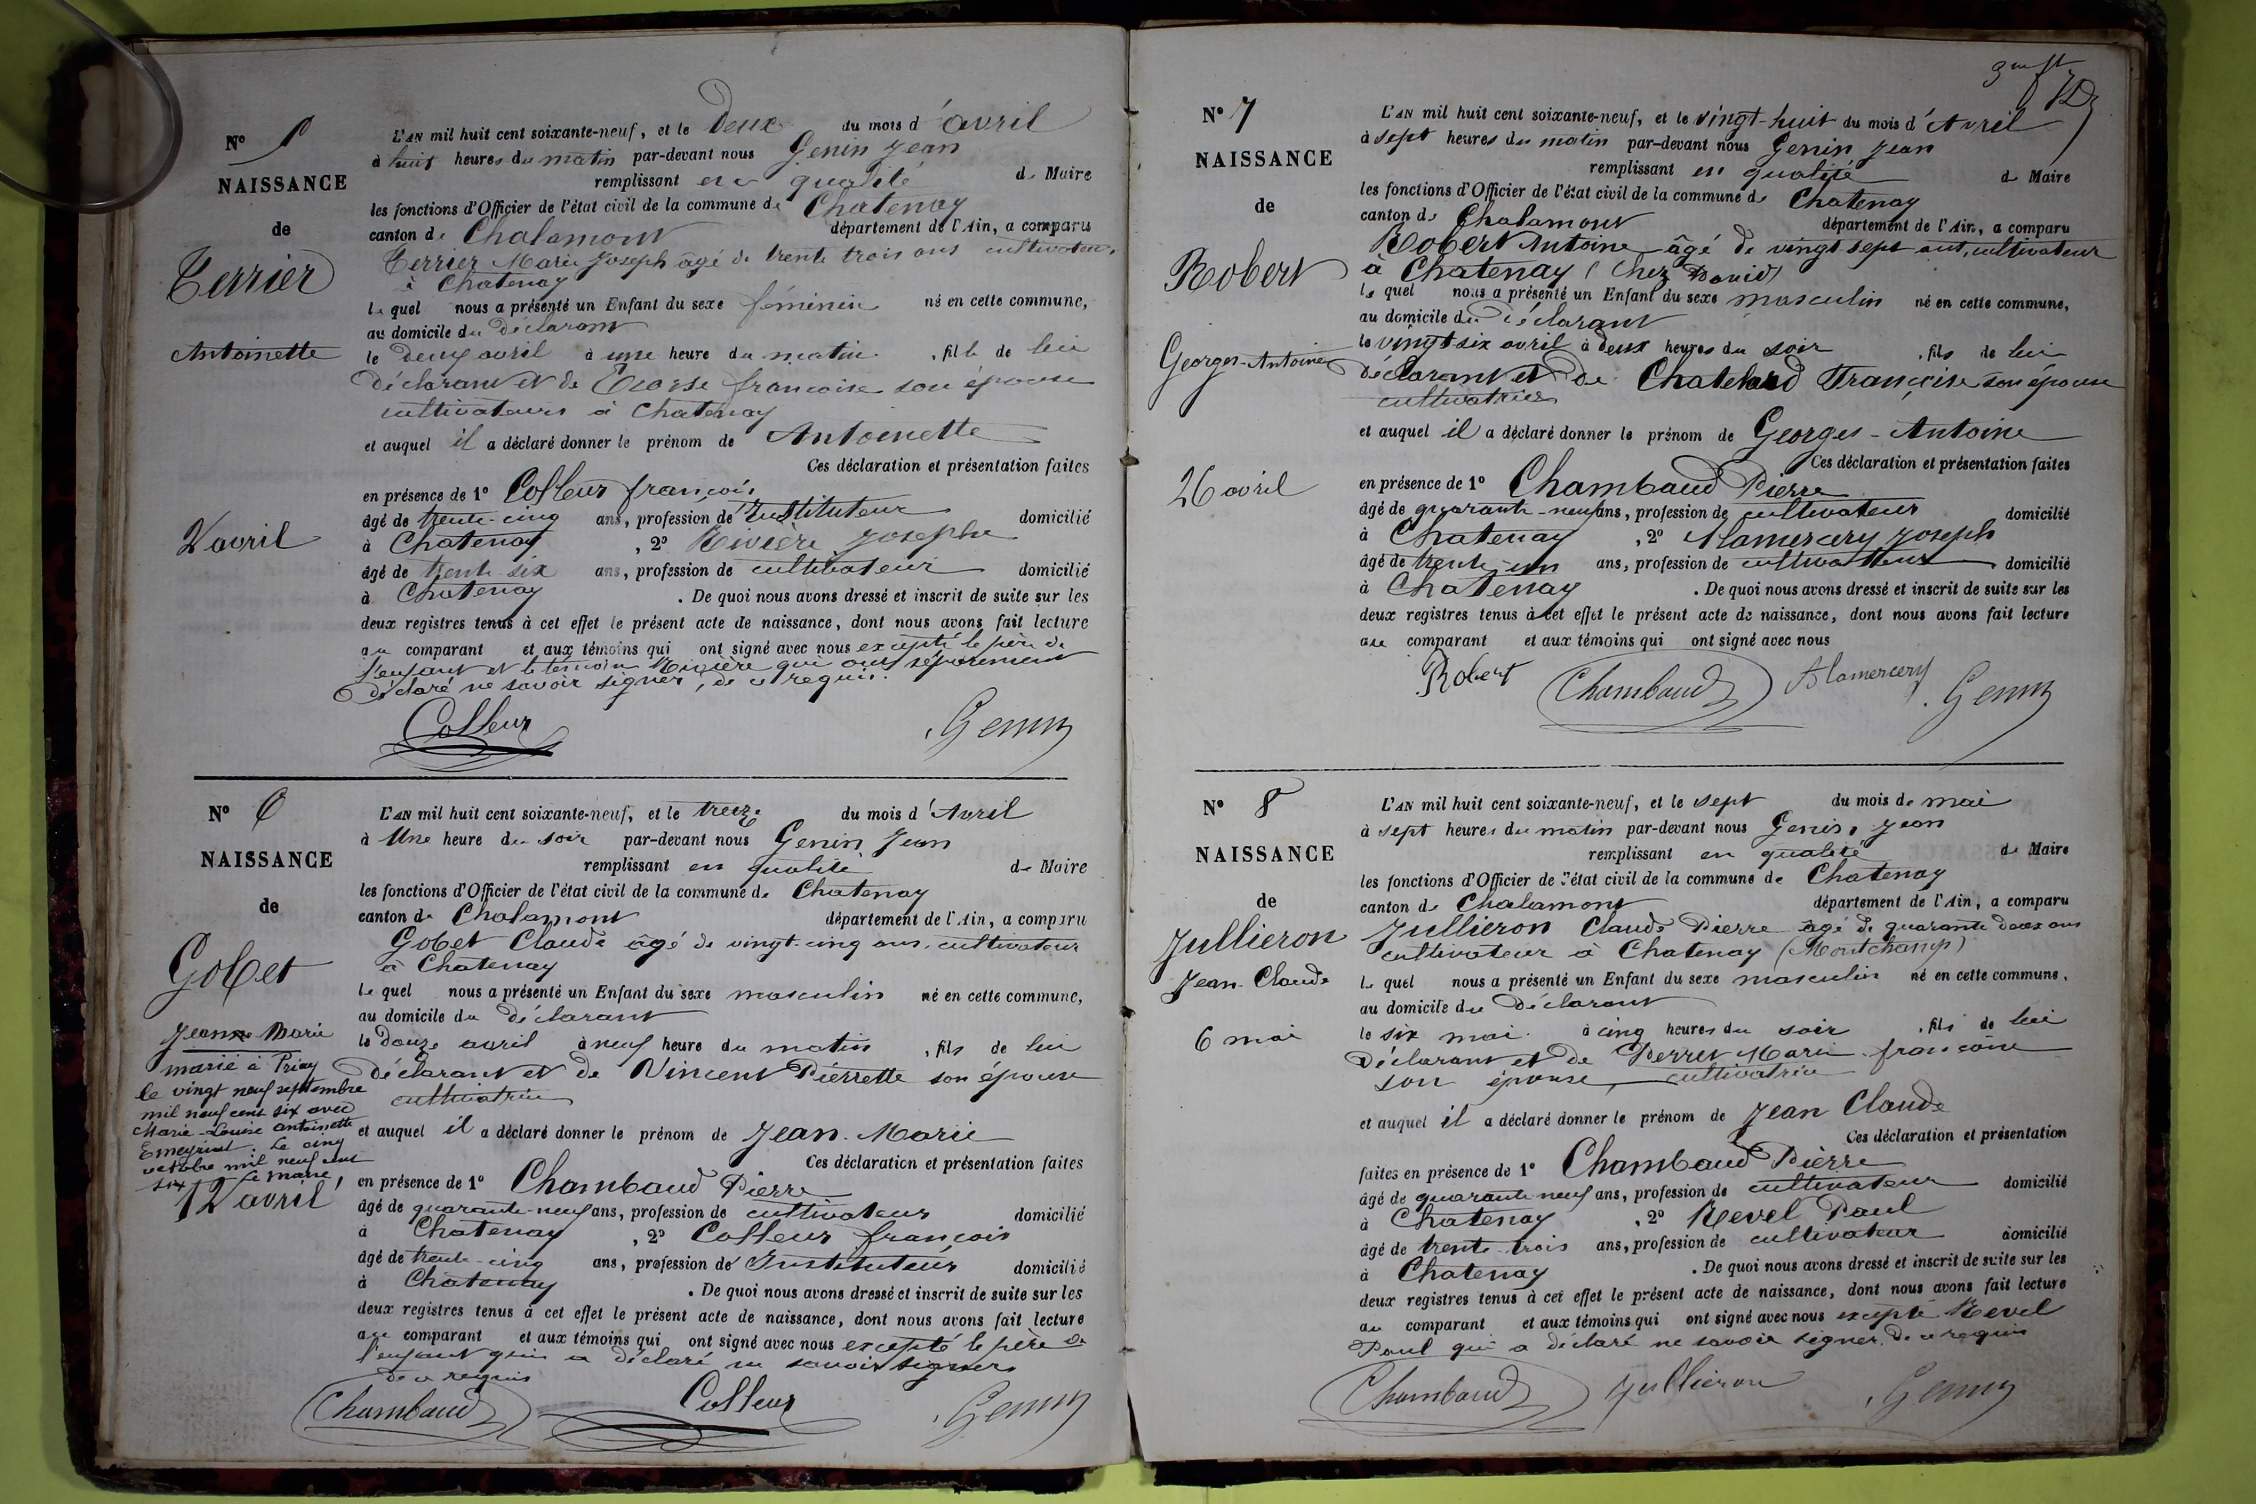 N° 5
NAISSANCE
de
Terrier
Antoinette
2 avril
L'AN mil huit cent soixante-neuf, et le deux du mois d'avril
à huit heures du matin par-devant nous Genin Jean
remplissant en qualité de Maire
les fonctions d'Officier de l'état civil de la commune de Chatenay
canton de Chalamont département de l'Ain, a comparu
Terrier Marie Joseph âgé de trente trois ans cultivateur
à Chatenay
le quel nous a présenté un Enfant du sexe féminin né en cette commune,
au domicile du déclarant
le deux avril à une heure du matin, fille de lui
déclarant et de françoise son épouse
cultivateurs à Chatenay
et auquel il a déclaré donner le prénom de Antoinette
Ces déclaration et présentation faites
en présence de 1° Colleur françois
âgé de trente-cinq ans, profession de Instituteur domicilié
à Chatenay, 2° Rivière Joseph
âgé de trente-six ans, profession de cultivateur domicilié
à Chatenay. De quoi nous avons dressé et inscrit de suite sur les
deux registres tenus à cet effet le présent acte de naissance, dont nous avons fait lecture
au comparant et aux témoins qui ont signé avec nous excepté le père de
l'enfant et le témoin Rivière qui ont séparément
déclaré ne savoir signer, de ce requis.
Colleur Genin
N° 6
NAISSANCE
de
Gobet
Jean Marie
marié à Priay
le vingt neuf septembre
mil neuf cent six avec
Marie-Louise Antoinette
Le cinq
octobre mil neuf cent
six Le maire,
12 avril
L'AN mil huit cent soixante-neuf, et le treize du mois d'Avril
à Une heure du soir par-devant nous Genin Jean
remplissant en qualité de Maire
les fonctions d'Officier de l'état civil de la commune de Chatenay
canton de Chalamont département de l'Ain, a comparu
Gobet Claude âgé de vingt-cinq ans, cultivateur
à Chatenay
le quel nous a présenté un Enfant du sexe masculin né en cette commune,
au domicile du déclarant
le douze avril à neuf heure du matin, fils de lui
déclarant et de Vincent Pierrette son épouse
cultivatrice
et auquel il a déclaré donner le prénom de Jean-Marie
Ces déclaration et présentation faites
en présence de 1° Chambaud Pierre
âgé de quarante-neuf ans, profession de cultivateur domicilié
à Chatenay, 2° Colleur françois
âgé de trente-cinq ans, profession de Instituteur domicilié
à Chatenay. De quoi nous avons dressé et inscrit de suite sur les
deux registres tenus à cet effet le présent acte de naissance, dont nous avons fait lecture
au comparant et aux témoins qui ont signé avec nous excepté le père de
l'enfant qui a déclaré ne savoir signer
de ce requis
Chambaud Colleur Genin
N° 7
NAISSANCE
de
Robert
Georges-Antoine
26 avril
L'AN mil huit cent soixante-neuf, et le vingt-huit du mois d'Avril
à sept heures du matin par-devant nous Genin Jean
remplissant en qualité de Maire
les fonctions d'Officier de l'état civil de la commune de Chatenay
canton de Chalamont département de l'Ain, a comparu
Robert Antoine âgé de vingt-sept ans, cultivateur
à Chatenay (chez David)
le quel nous a présenté un Enfant du sexe masculin né en cette commune,
au domicile du déclarant
le vingt-six avril à deux heures du soir, fils de lui
déclarant et de Chatelard Françoise son épouse
cultivatrice
et auquel il a déclaré donner le prénom de Georges-Antoine
Ces déclaration et présentation faites
en présence de 1° Chambaud Pierre
âgé de quarante-neuf ans, profession de cultivateur domicilié
à Chatenay, 2° Alamercery Joseph
âgé de trente-un ans, profession de cultivateur domicilié
à Chatenay. De quoi nous avons dressé et inscrit de suite sur les
deux registres tenus à cet effet le présent acte de naissance, dont nous avons fait lecture
au comparant et aux témoins qui ont signé avec nous
Robert Chambaud Alamercery Genin
N° 8
NAISSANCE
de
Jullieron
Jean-Claude
6 mai
L'AN mil huit cent soixante-neuf, et le sept du mois de mai
à sept heures du matin par-devant nous Genin Jean
remplissant en qualité de Maire
les fonctions d'Officier de l'état civil de la commune de Chatenay
canton de Chalamont département de l'Ain, a comparu
Jullieron Claude Pierre âgé de quarante deux ans
cultivateur à Chatenay (Montchamp)
le quel nous a présenté un Enfant du sexe masculin né en cette commune,
au domicile du déclarant
le six mai à cinq heures du soir, fils de lui
déclarant et de Perret Marie françoise
son épouse, cultivatrice
et auquel il a déclaré donner le prénom de Jean Claude
Ces déclaration et présentation
faites en présence de 1° Chambaud Pierre
âgé de quarante neuf ans, profession de cultivateur domicilié
à Chatenay, 2° Revel Paul
âgé de trente-trois ans, profession de cultivateur domicilié
à Chatenay. De quoi nous avons dressé et inscrit de suite sur les
deux registres tenus à cet effet le présent acte de naissance, dont nous avons fait lecture
au comparant et aux témoins qui ont signé avec nous excepté Revel
Paul qui a déclaré ne savoir signer de ce requis
Chambaud Jullieron Genin